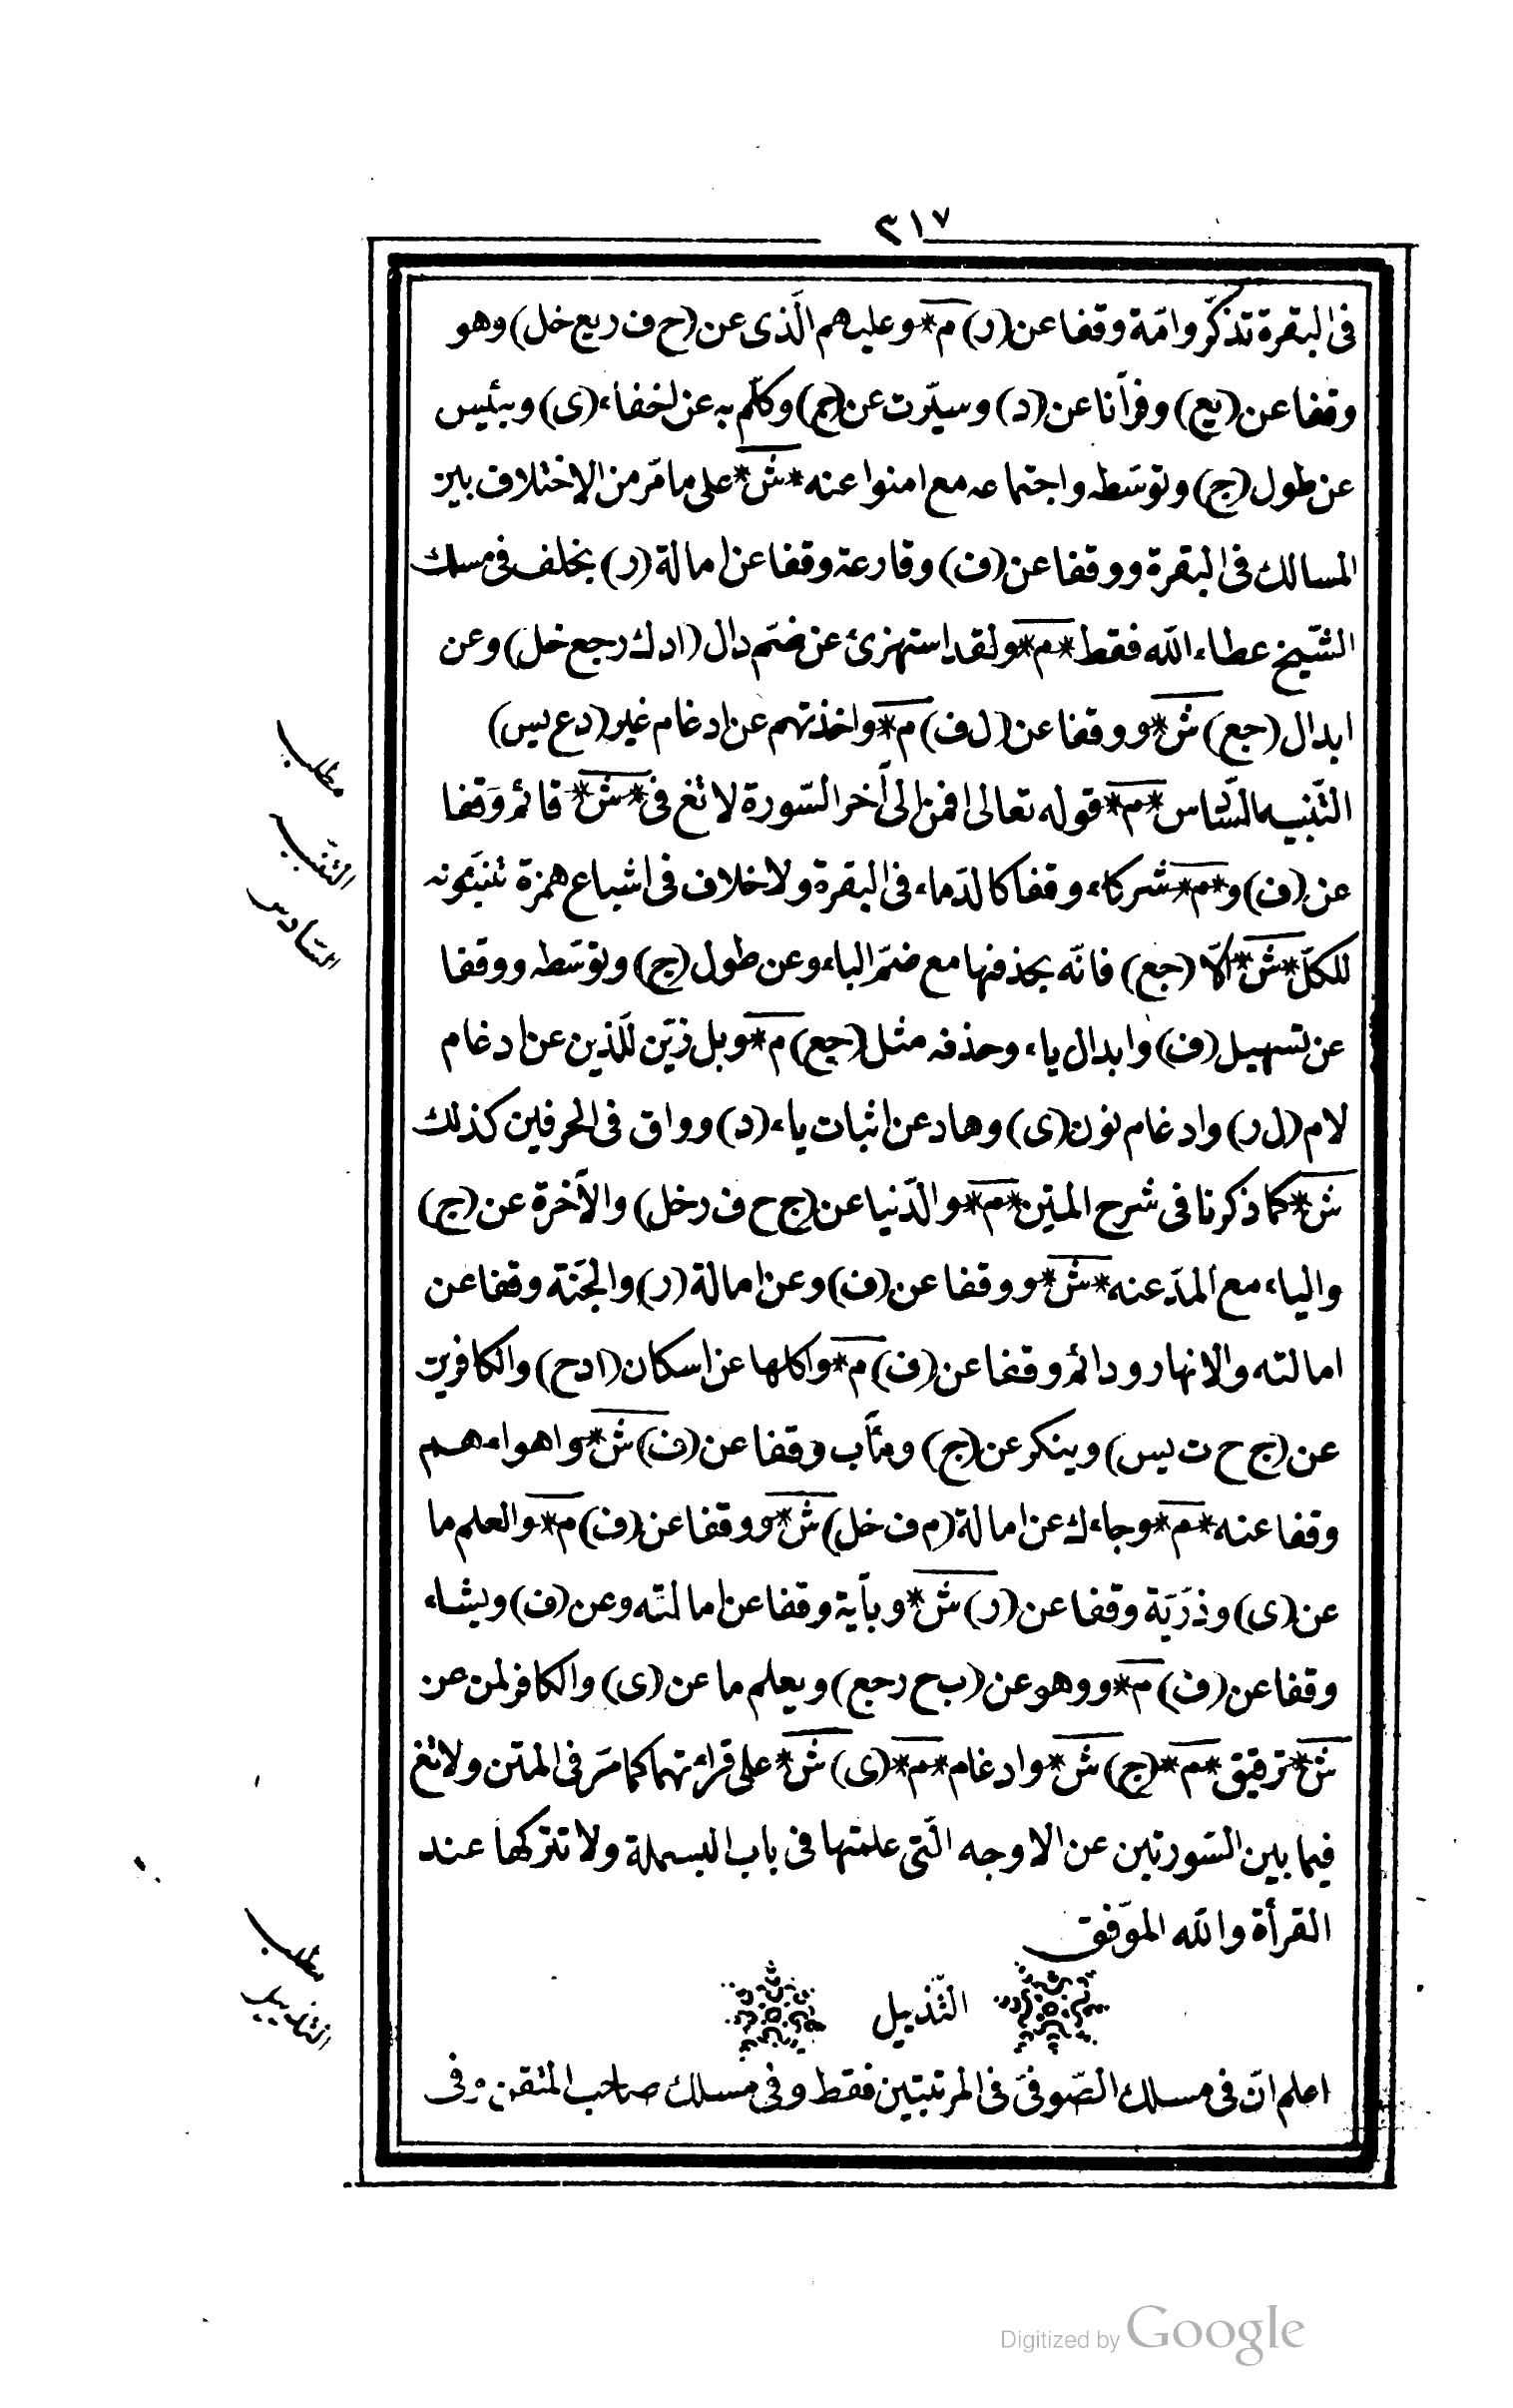 ٣١٧
فى البقرة تذكّر وامّة وقفا عن (ر) م* وعليهم الّذى عن (ح ف ر يع خل) وهو
وقفا عن (يع) وقرآنا عن (د) وسيّرت عن (ج) وكلّم به عن اخفاء (ى) وبئيس
عن طول (ج) وتوسّطه واجتماعه مع امنوا عنه *ش* على ما مّر من الاختلاف بين
المسالك فى البقرة ووقفا عن (ف) وقارعة وقفا عن امالة (ر) بخلف فى مسلك
الشّيخ عطاء الله فقط *م* ولقد استهزئ عن ضمّ دال (ا د ك ر جع خل) وعن
ابدال (جع) ش* ووقفا عن (ل ف) م* واخذتهم عن ادغام غير (د ع يس)
التّنبيه السّادس *م* قوله تعالى افمن الى آخر السّورة لا تغ فى *ش* قائم وَقفا
عن (ف) و *م* شركاء وقفا كالدّماء فى البقرة ولا خلاف فى اشباع همزة تنبّئونه
للكلّ *ش* الّا (جع) فانّه بحذفها مع ضمّ الباء وعن طول (ج) وتوسّطه ووقفا
عن تسهيل (ف) وابدال ياء وحذفه مثل (جع) م* وبل زيّن للّذين عن ادغام
لام (ل ر) وادغام نون (ى) وهاد عن اثبات ياء (د) وواق فى الحرفين كذلك
ش* كما ذكرنا فى شرح المتين *م* والدّنيا عن (ج ح ف ر خل) والآخرة عن (ج)
والياء مع المدّ عنه *ش* ووقفا عن (ف) وعن امالة (ر) والجنّة وقفا عن
امالته والانهار ودائم وقفا عن (ف) م* واكلها عن اسكان (ا د ح) والكافرين
عن (ج ح ت يس) وينكر عن (ج) ومئآب وقفا عن (ف) ش* واهواءهم
وقفا عنه *م* وجاءك عن امالة (م ف خل) ش* ووقفا عن (ف) م* والعلم ما
عن (ى) وذرّيّة وقفا عن (ر) ش* وبآية وقفا عن امالته وعن (ف) ويشاء
وقفا عن (ف) م* ووهو عن (ب ح ر جع) ويعلم ما عن (ى) والكافر لمن عن
ش* ترقيق *م* (ج) ش* وادغام *م* (ى) ش* على قراءتهما كما مَر فى المتن ولا تغ
فيما بين السّورتين عن الاوجه الّتى علمتها فى باب البسملة ولا تتركها عند
القرأة والله الموّفق
التّذييل
اعلم انّ فى مسلك الصّوفىّ فى المرتبتين فقط وفى مسلك صاحب المتقن وفى
مطلب
التّنبيه
السّادس
مطلب
التّذييل
Digitized by Google